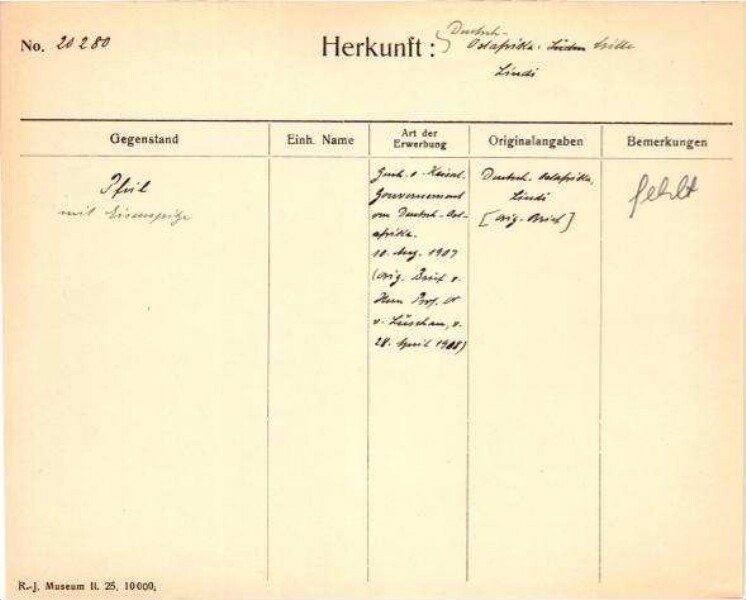 No. 20280
Herkunft :
Deutsch-
Ostafrika. Süden
Lindi
Gegenstand
Einh. Name
Art der
Erwerbung
Originalangaben
Bemerkungen
Pfeil
mit Eisenspitze
Gesch. v. Kaiserl.
Gouvernement
von Deutsch-Ost-
afrika.
10. Aug. 1907
(orig. Brief v.
Herrn Prof. Dr
v. Luschan, v.
28. April 1908)
Deutsch. Ostafrika,
Lindi
[orig.-Brief]
fehlt
R.-J. Museum II. 25. 10000.